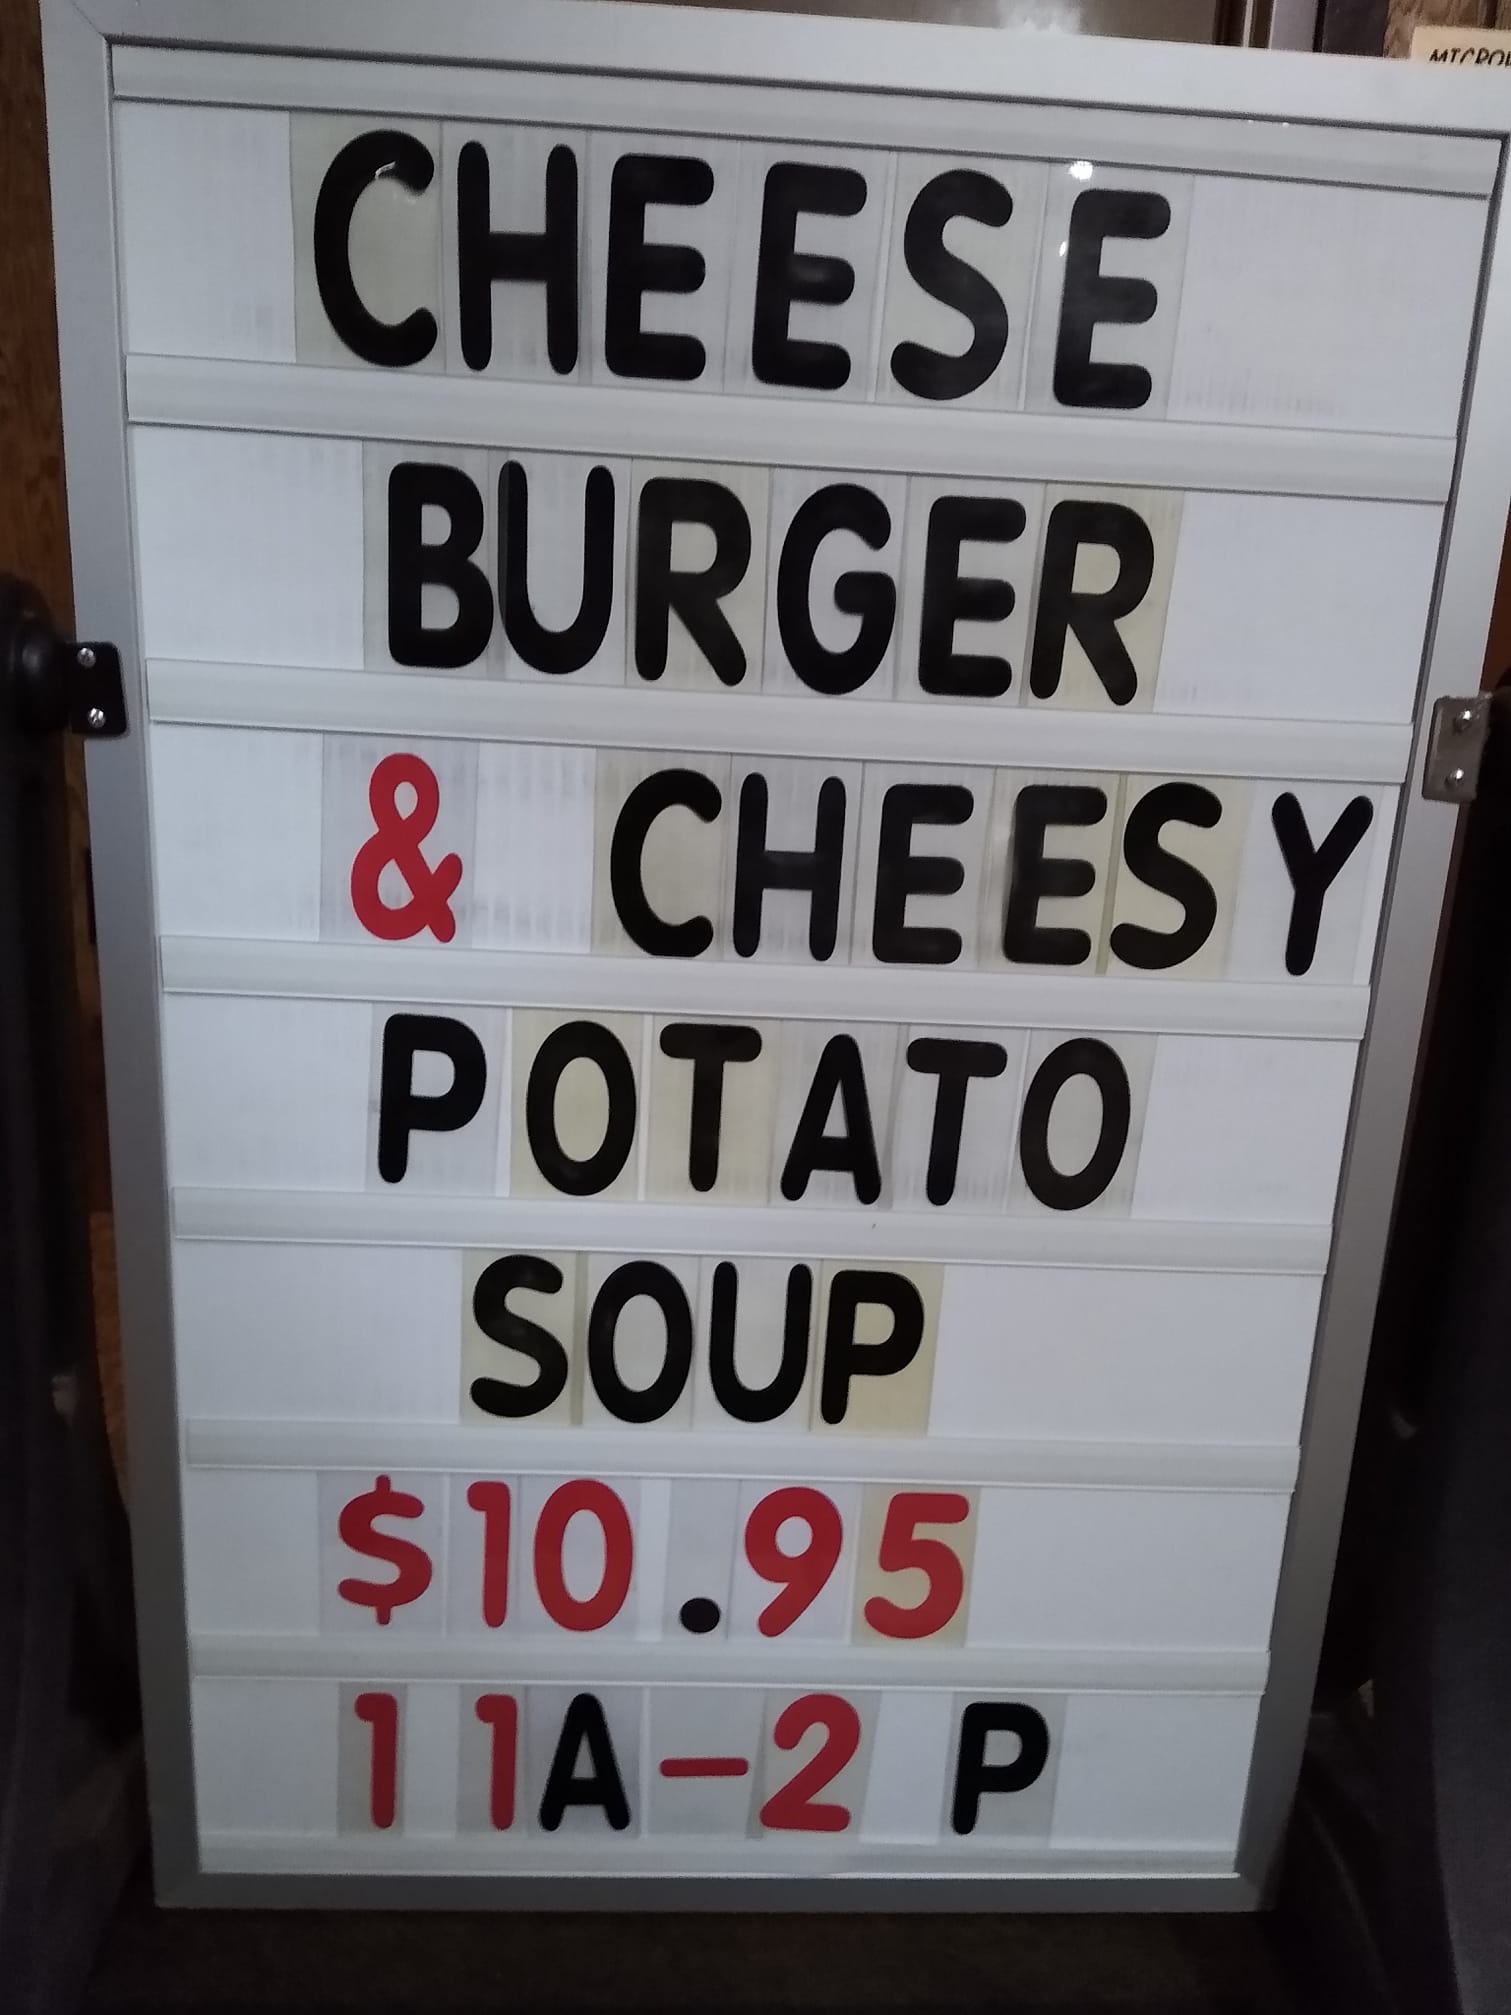 CHEESE
BURGER
& CHEESY
POTATO
SOUP
$10.95
11A-2 P